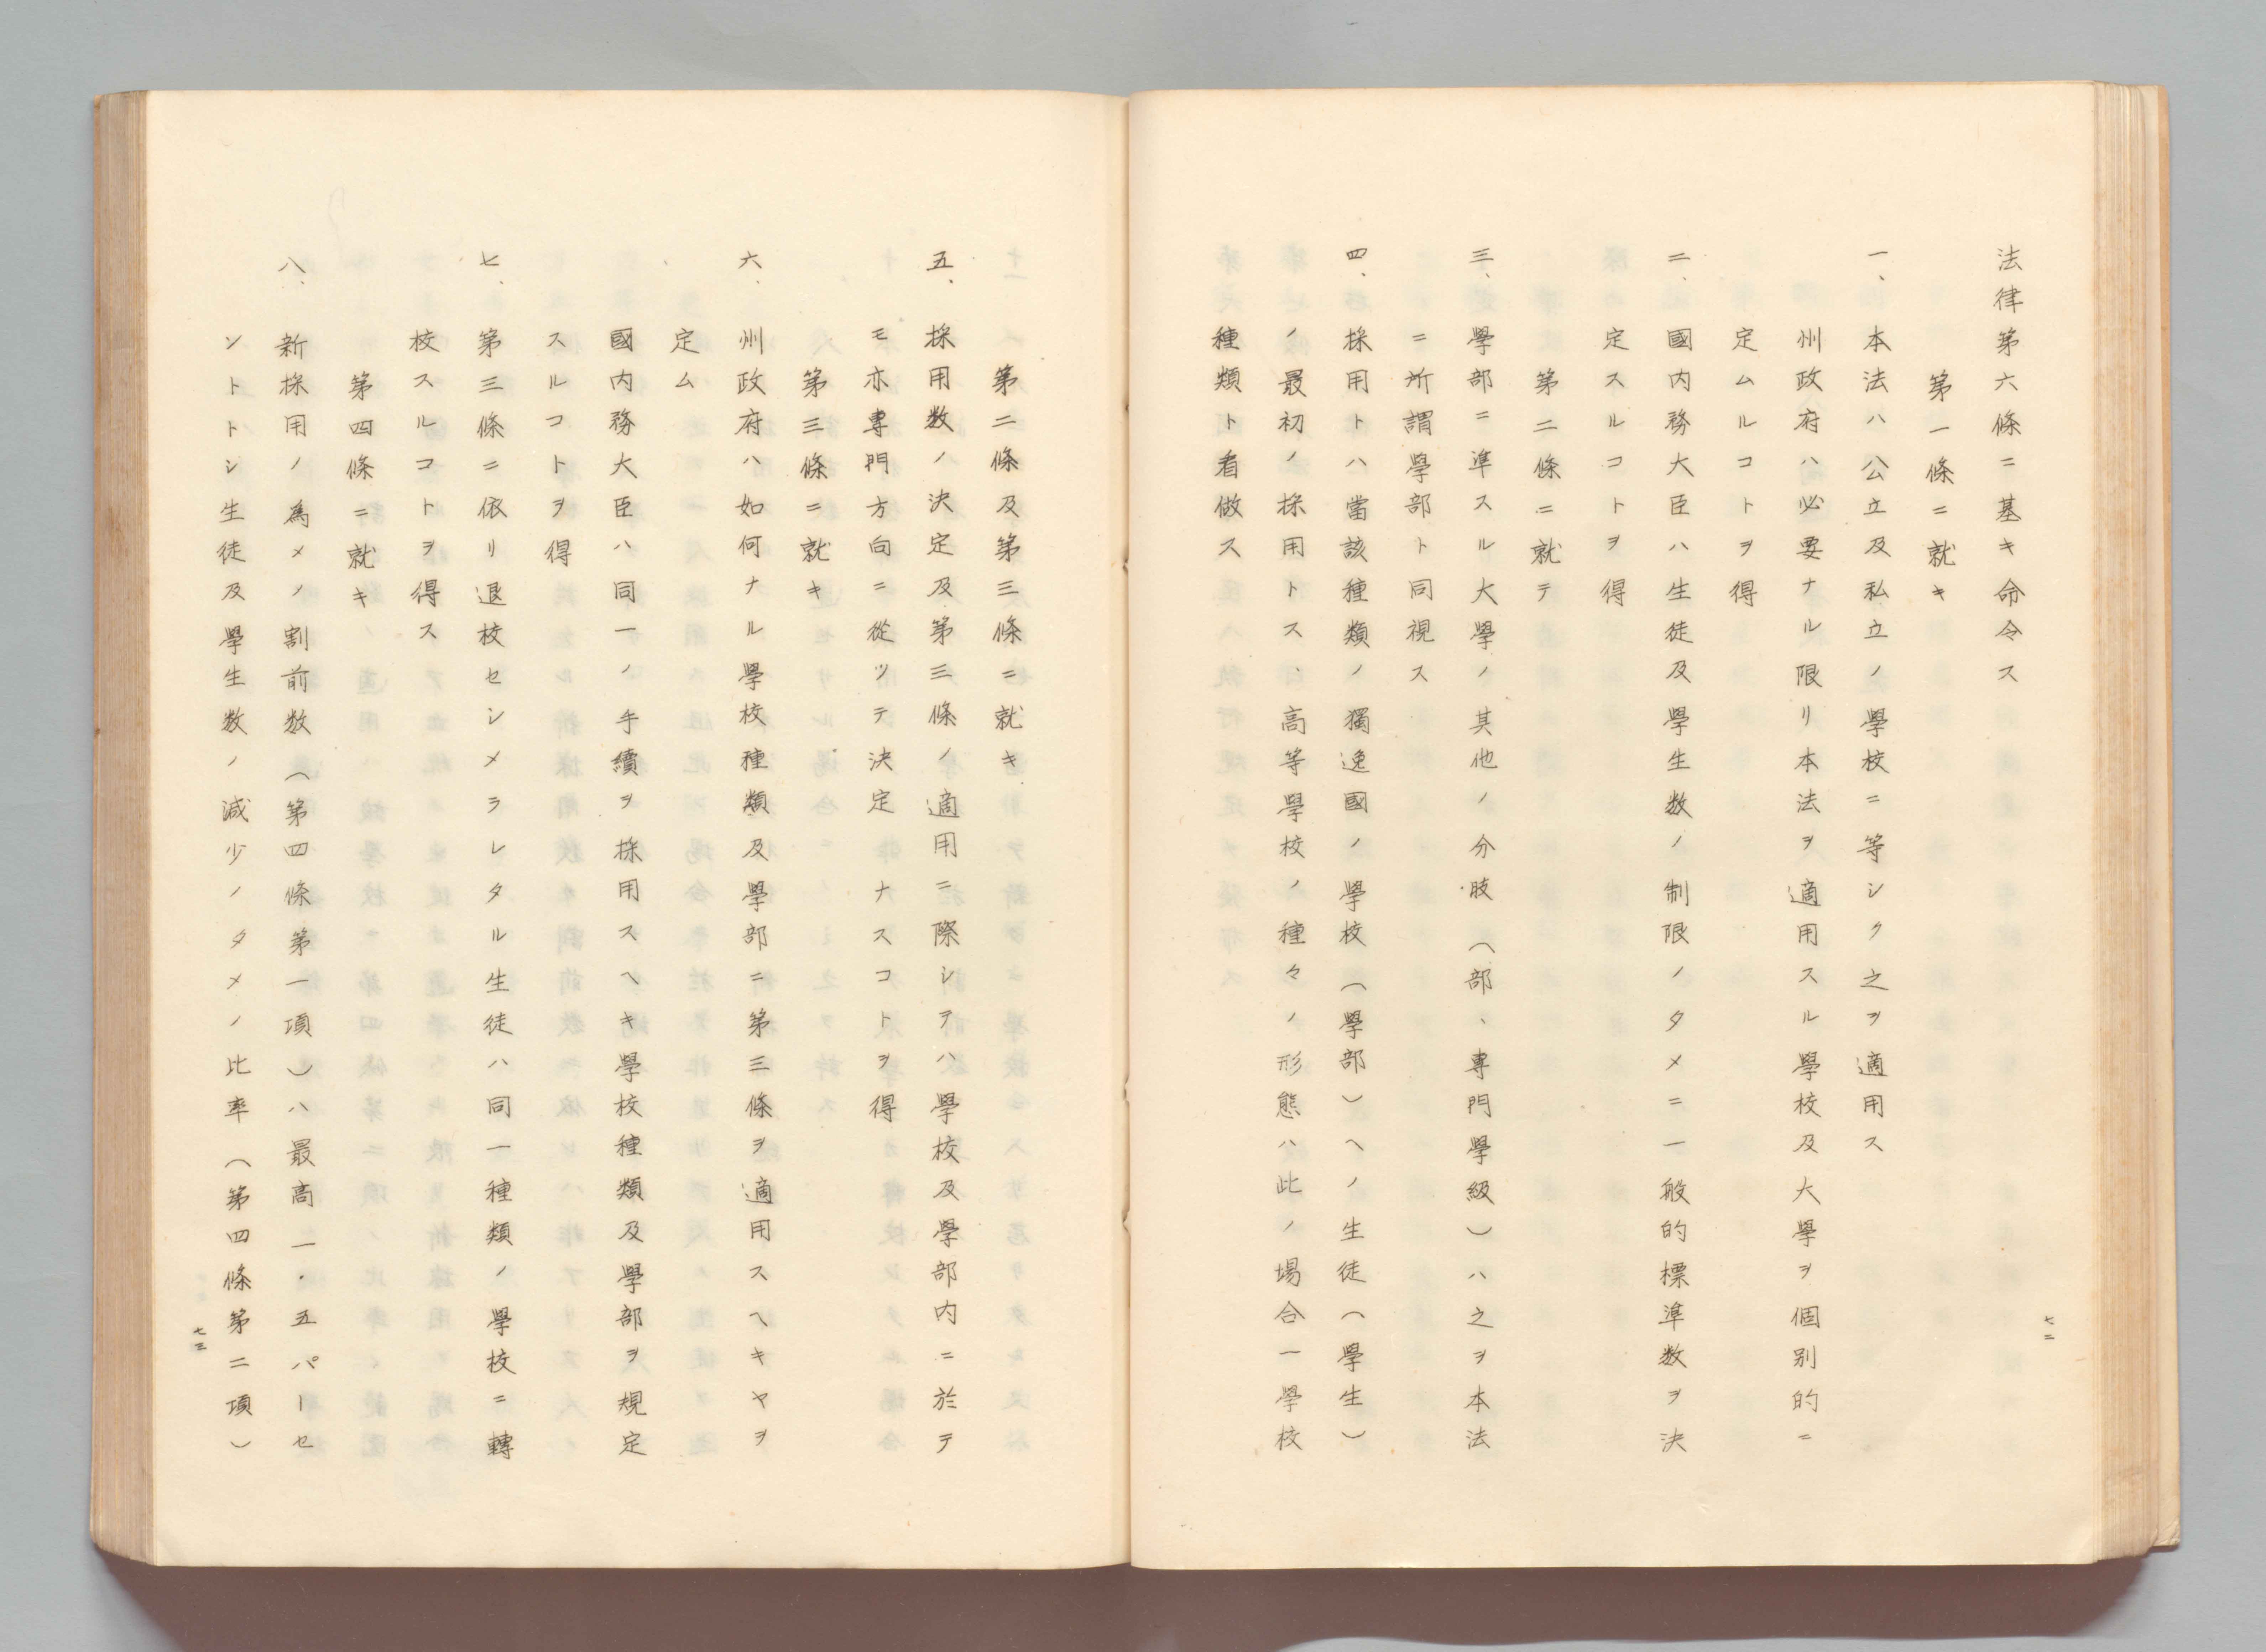 法律第六條ニ基キ命令ス
第一條ニ就キ
一、本法ハ公立及私立ノ學校ニ等シク之ヲ適用ス
州政府ハ必要ナル限リ本法ヲ適用スル學校及大學ヲ個別的ニ
定ムルコトヲ得
二、國内務大臣ハ生徒及學生数ノ制限ノタメニ一般的標準数ヲ決
定スルコトヲ得
第二條ニ就テ
三、學部ニ準スル大學ノ其他ノ分肢（部、専門學級）ハ之ヲ本法
ニ所謂學部ト同視ス
四、採用トハ當該種類ノ獨逸國ノ學校（學部）ヘノ生徒（學生）
ノ最初ノ採用トス、高等學校ノ種々ノ形態ハ此ノ場合一學校
種類ト看做ス
七二
第二條及第三條ニ就キ
五、採用数ノ決定及第三條ノ適用ニ際シテハ學校及學部内ニ於テ
モ亦専門方向ニ從ツテ決定ナスコトヲ得
第三條ニ就キ
六、州政府ハ如何ナル學校種類及學部ニ第三條ヲ適用スヘキヤヲ
定ム
國内務大臣ハ同一ノ手續ヲ採用スヘキ學校種類及學部ヲ規定
スルコトヲ得
七、第三條ニ依リ退校センメラレタル生徒ハ同一種類ノ學校ニ轉
校スルコトヲ得ス
第四條ニ就キ
八、新採用ノ為メノ割前数（第四條第一項）ハ最高一・五パーセ
ントトシ生徒及學生数ノ減少ノタメノ比率（第四條第二項）
七三